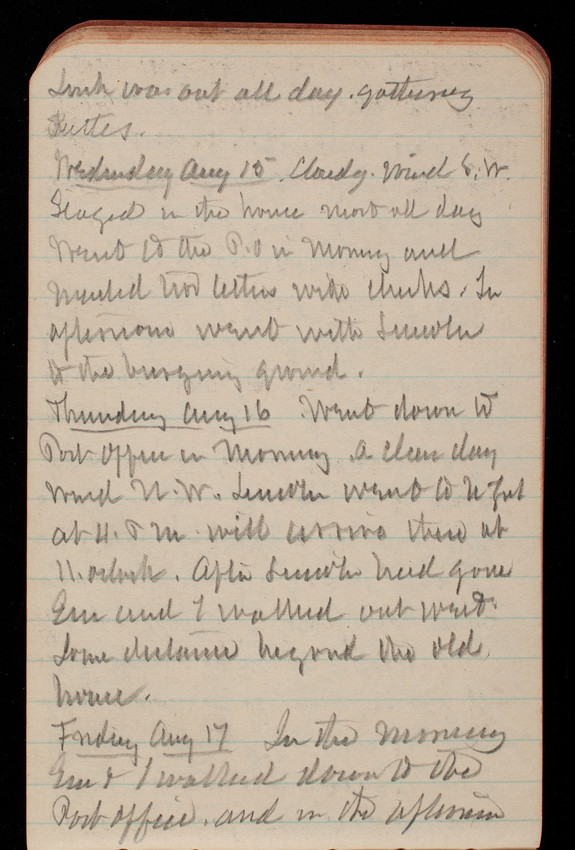 Linck was out all day. gathering
Wednesday Aug 15. Cloudy. Wind S.W.
Stayed in the house most all day
Went to the P.O in Morning and
mailed two letters with checks. In
afternoon went with Lincoln
to the burying ground.
Thursday Aug 16 Went down to
Post Office in Morning. A clear day
Wind N.W. Lincoln went to
at 4. P M. will arrive there at
11. oclock. After Lincoln had gone
Em and I walked out west
Some distance beyond the old
house.
Friday Aug 17 In the Morning
Em & I walked down to the
Post office. and in the afternoon